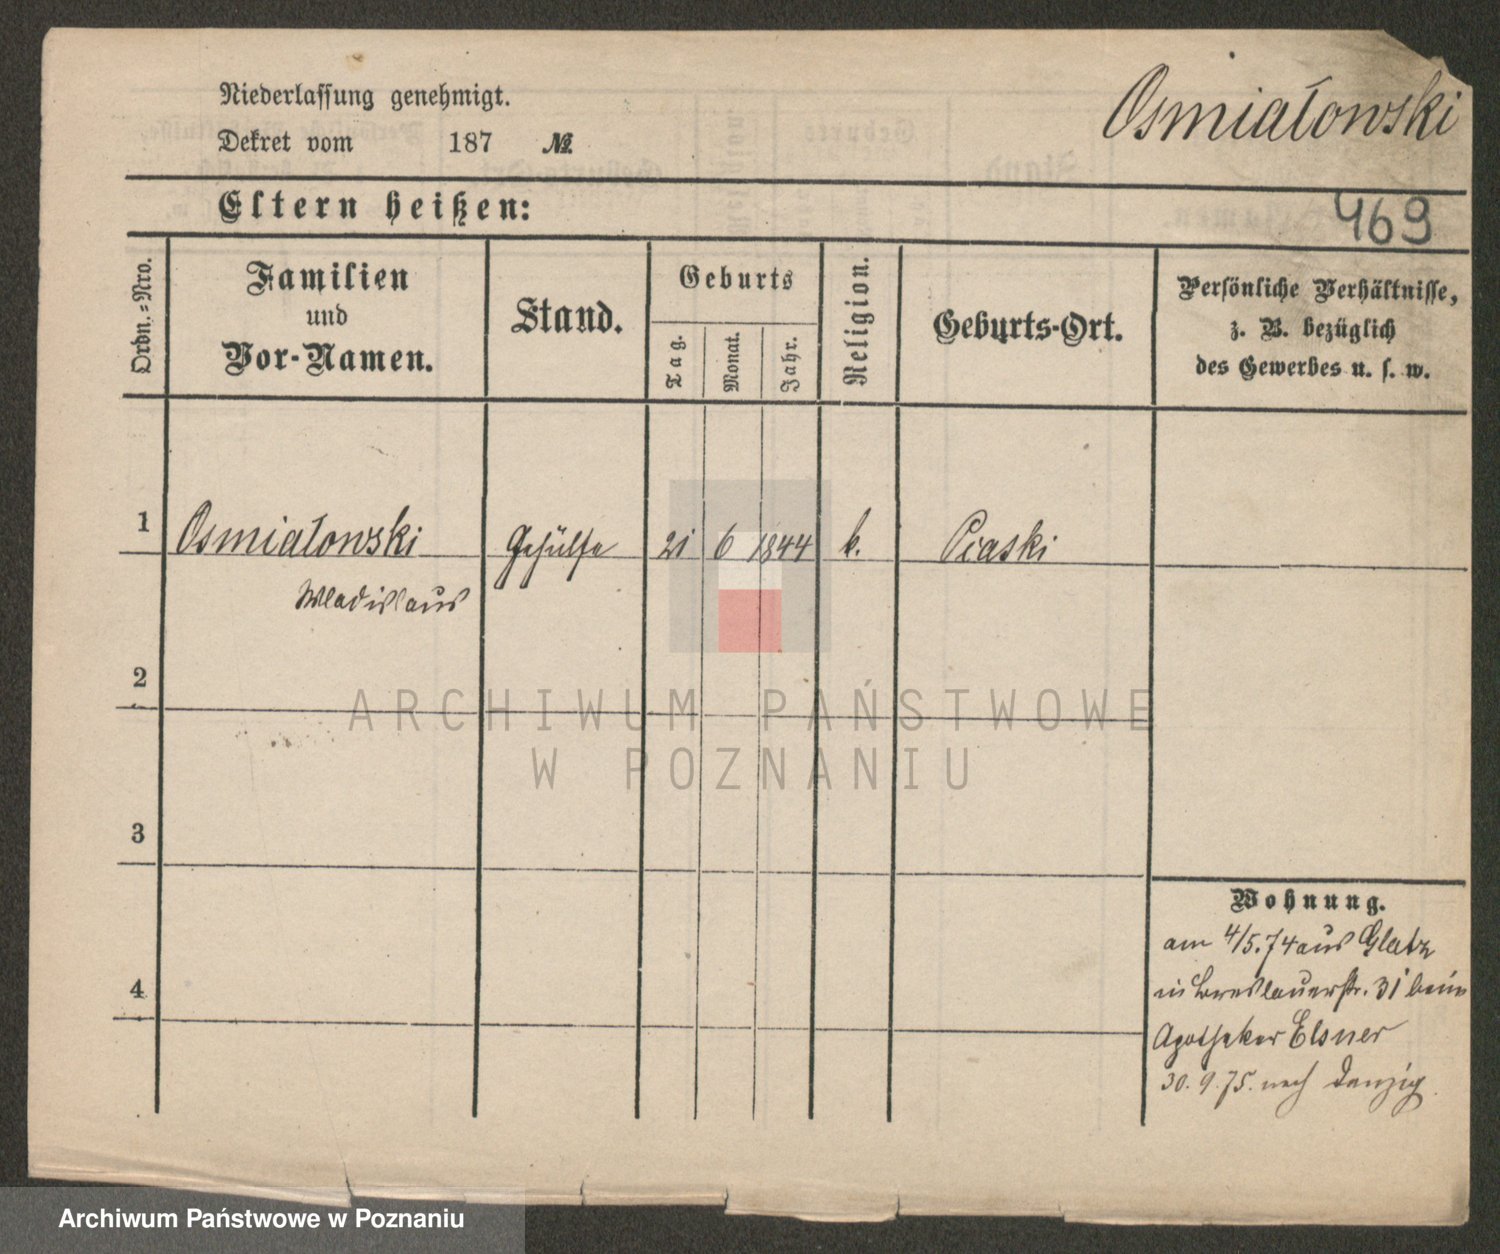 Niederlassung genehmigt.
Dekret vom 187 №
Osmiałowski
Eltern heißen:
469
Ordn.-Nro.
Familien
und
Vor-Namen.
Stand.
Geburts
Tag.
Monat.
Jahr.
Religion.
Geburts-Ort.
Persönliche Verhältnisse,
z. B. bezüglich
des Gewerbes u. s. w.
1 Osmiałowski Gehülfe 21 6 1844 k. Piaski
Wladislaus
2
3
4
Wohnung.
am 4/5.74 aus Glatz
in Breslauerstr. 31 beim
Apotheker Elsner
30.9.75. nach Danzig
ARCHIWUM PAŃSTWOWE
W POZNANIU
Archiwum Państwowe w Poznaniu